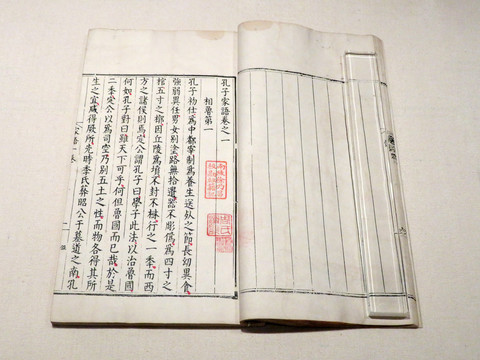 孔子家語卷之一
相魯第一
孔子初仕爲中都宰制爲養生送死之節長幼異食
強弱異任男女別塗路無拾遺器不彫僞爲四寸之
棺五寸之槨因丘陵爲墳不封不樹行之一秊而西
方之諸侯則焉定公謂孔子曰學子此法以治魯國
何如孔子對曰雖天下可乎何但魯國而已哉於是
二秊定公以爲司空乃別五土之性而物各得其所
生之宜咸得厥所先時季氏葬昭公于墓道之南孔